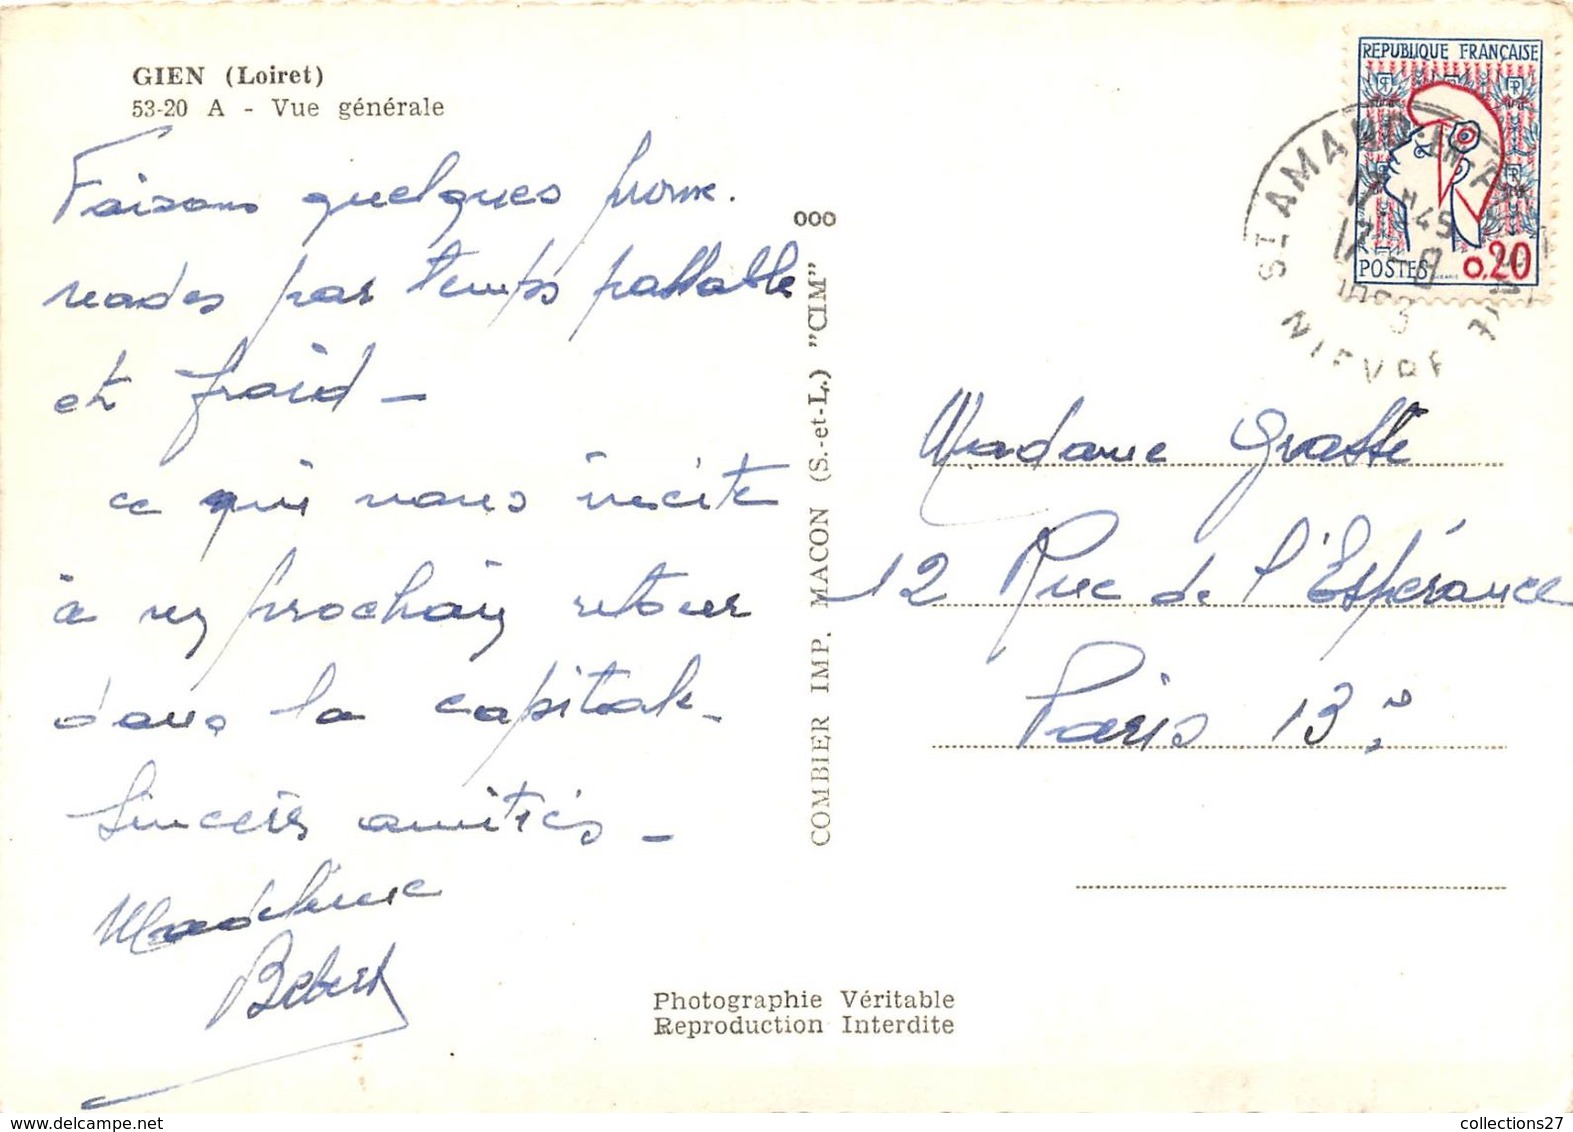 GIEN (Loiret)
53-20 A - Vue générale
Faisons quelques prome.
nades par temps passable
et froid -
ce qui nous incite
à un prochain retour
dans la capitale -
Sincères amitiés -
Madeleine
Bebert
ooo
COMBIER IMP. MACON (S.-et-L.) "CIM"
Photographie Véritable
Reproduction Interdite
REPUBLIQUE FRANÇAISE
POSTES 0,20
ST AMAND-EN-
17 H45
17 - 8
NIEVRE
Madame Grasse
12 Rue de l'Espérance
Paris 13e
collections27